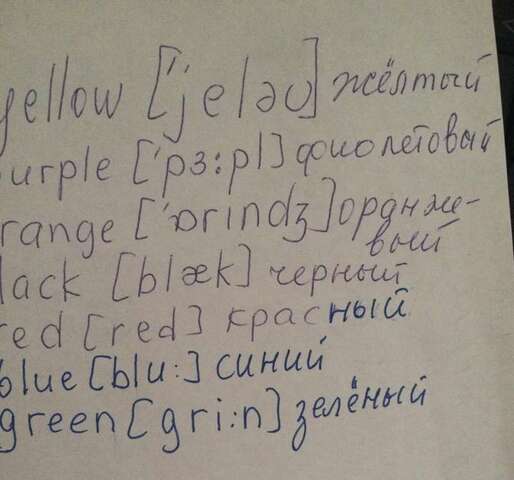 yellow ['jeləʊ] жёлтый
purple ['pɜ:pl] фиолетовый
range ['ɒrindʒ] оранже-
вый
lack [blæk] черный
red [red] красный
blue [blu:] синий
green [gri:n] зелёный